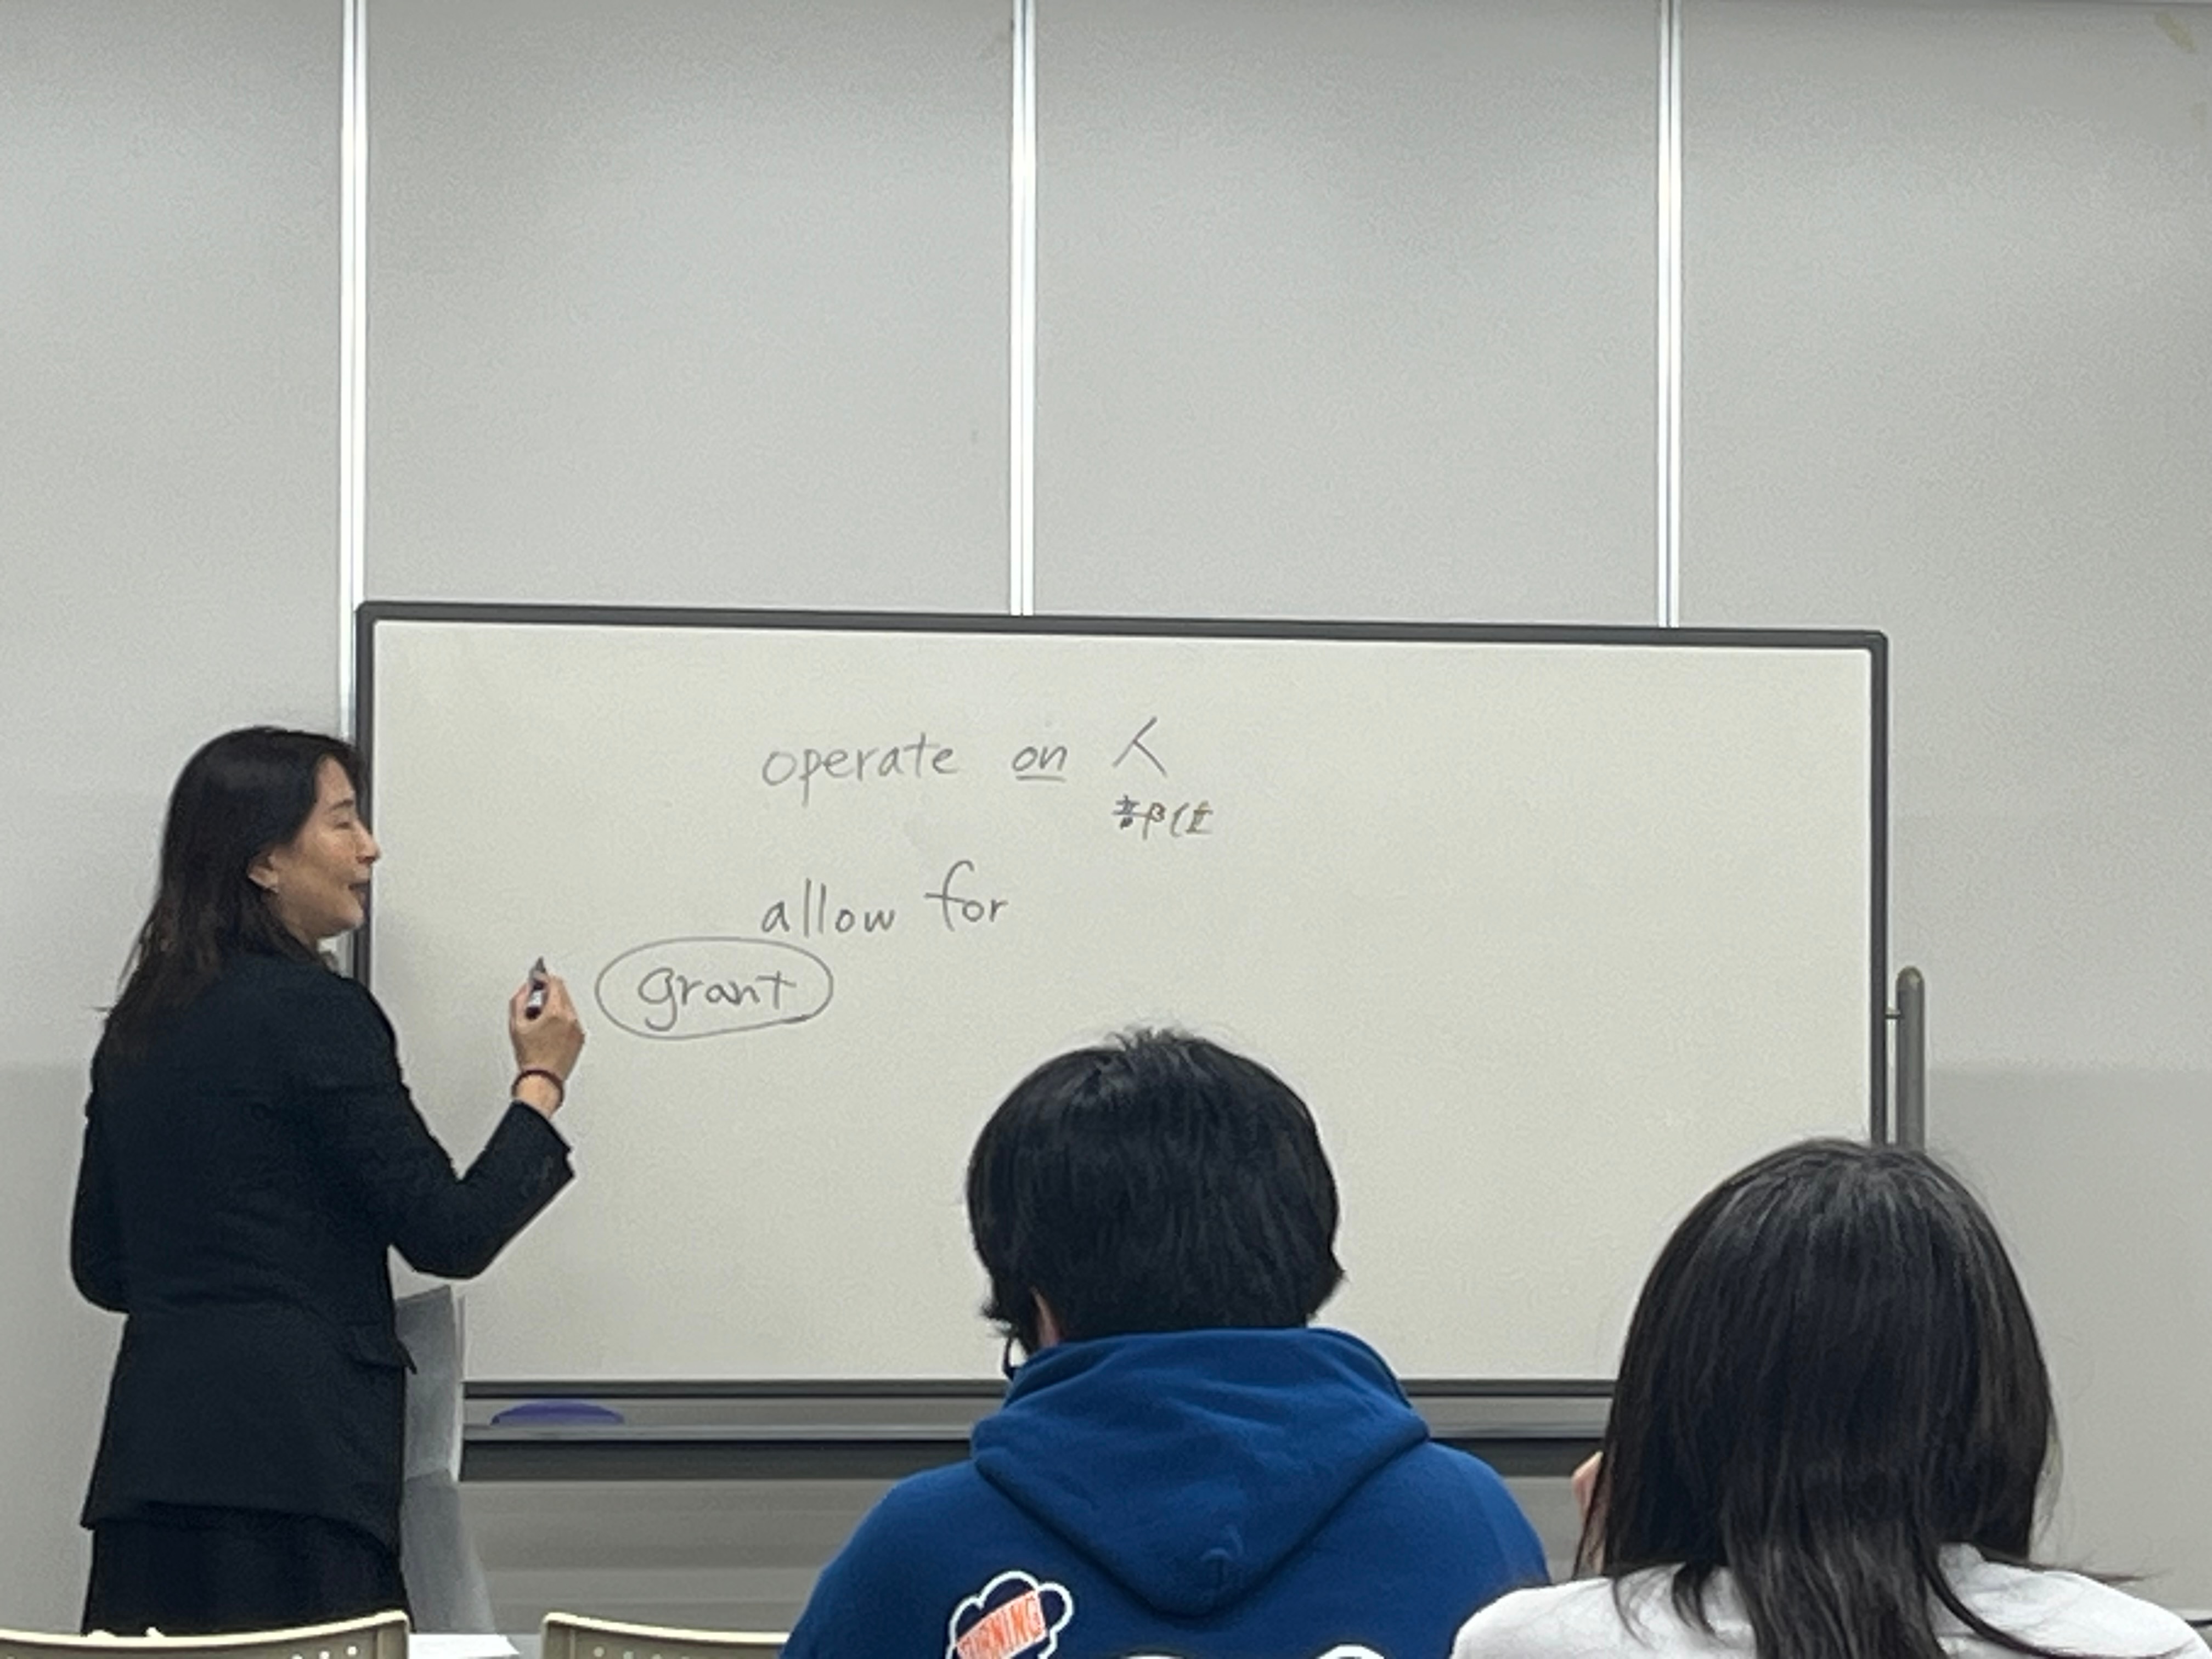 operate on 人
部位
allow for
grant